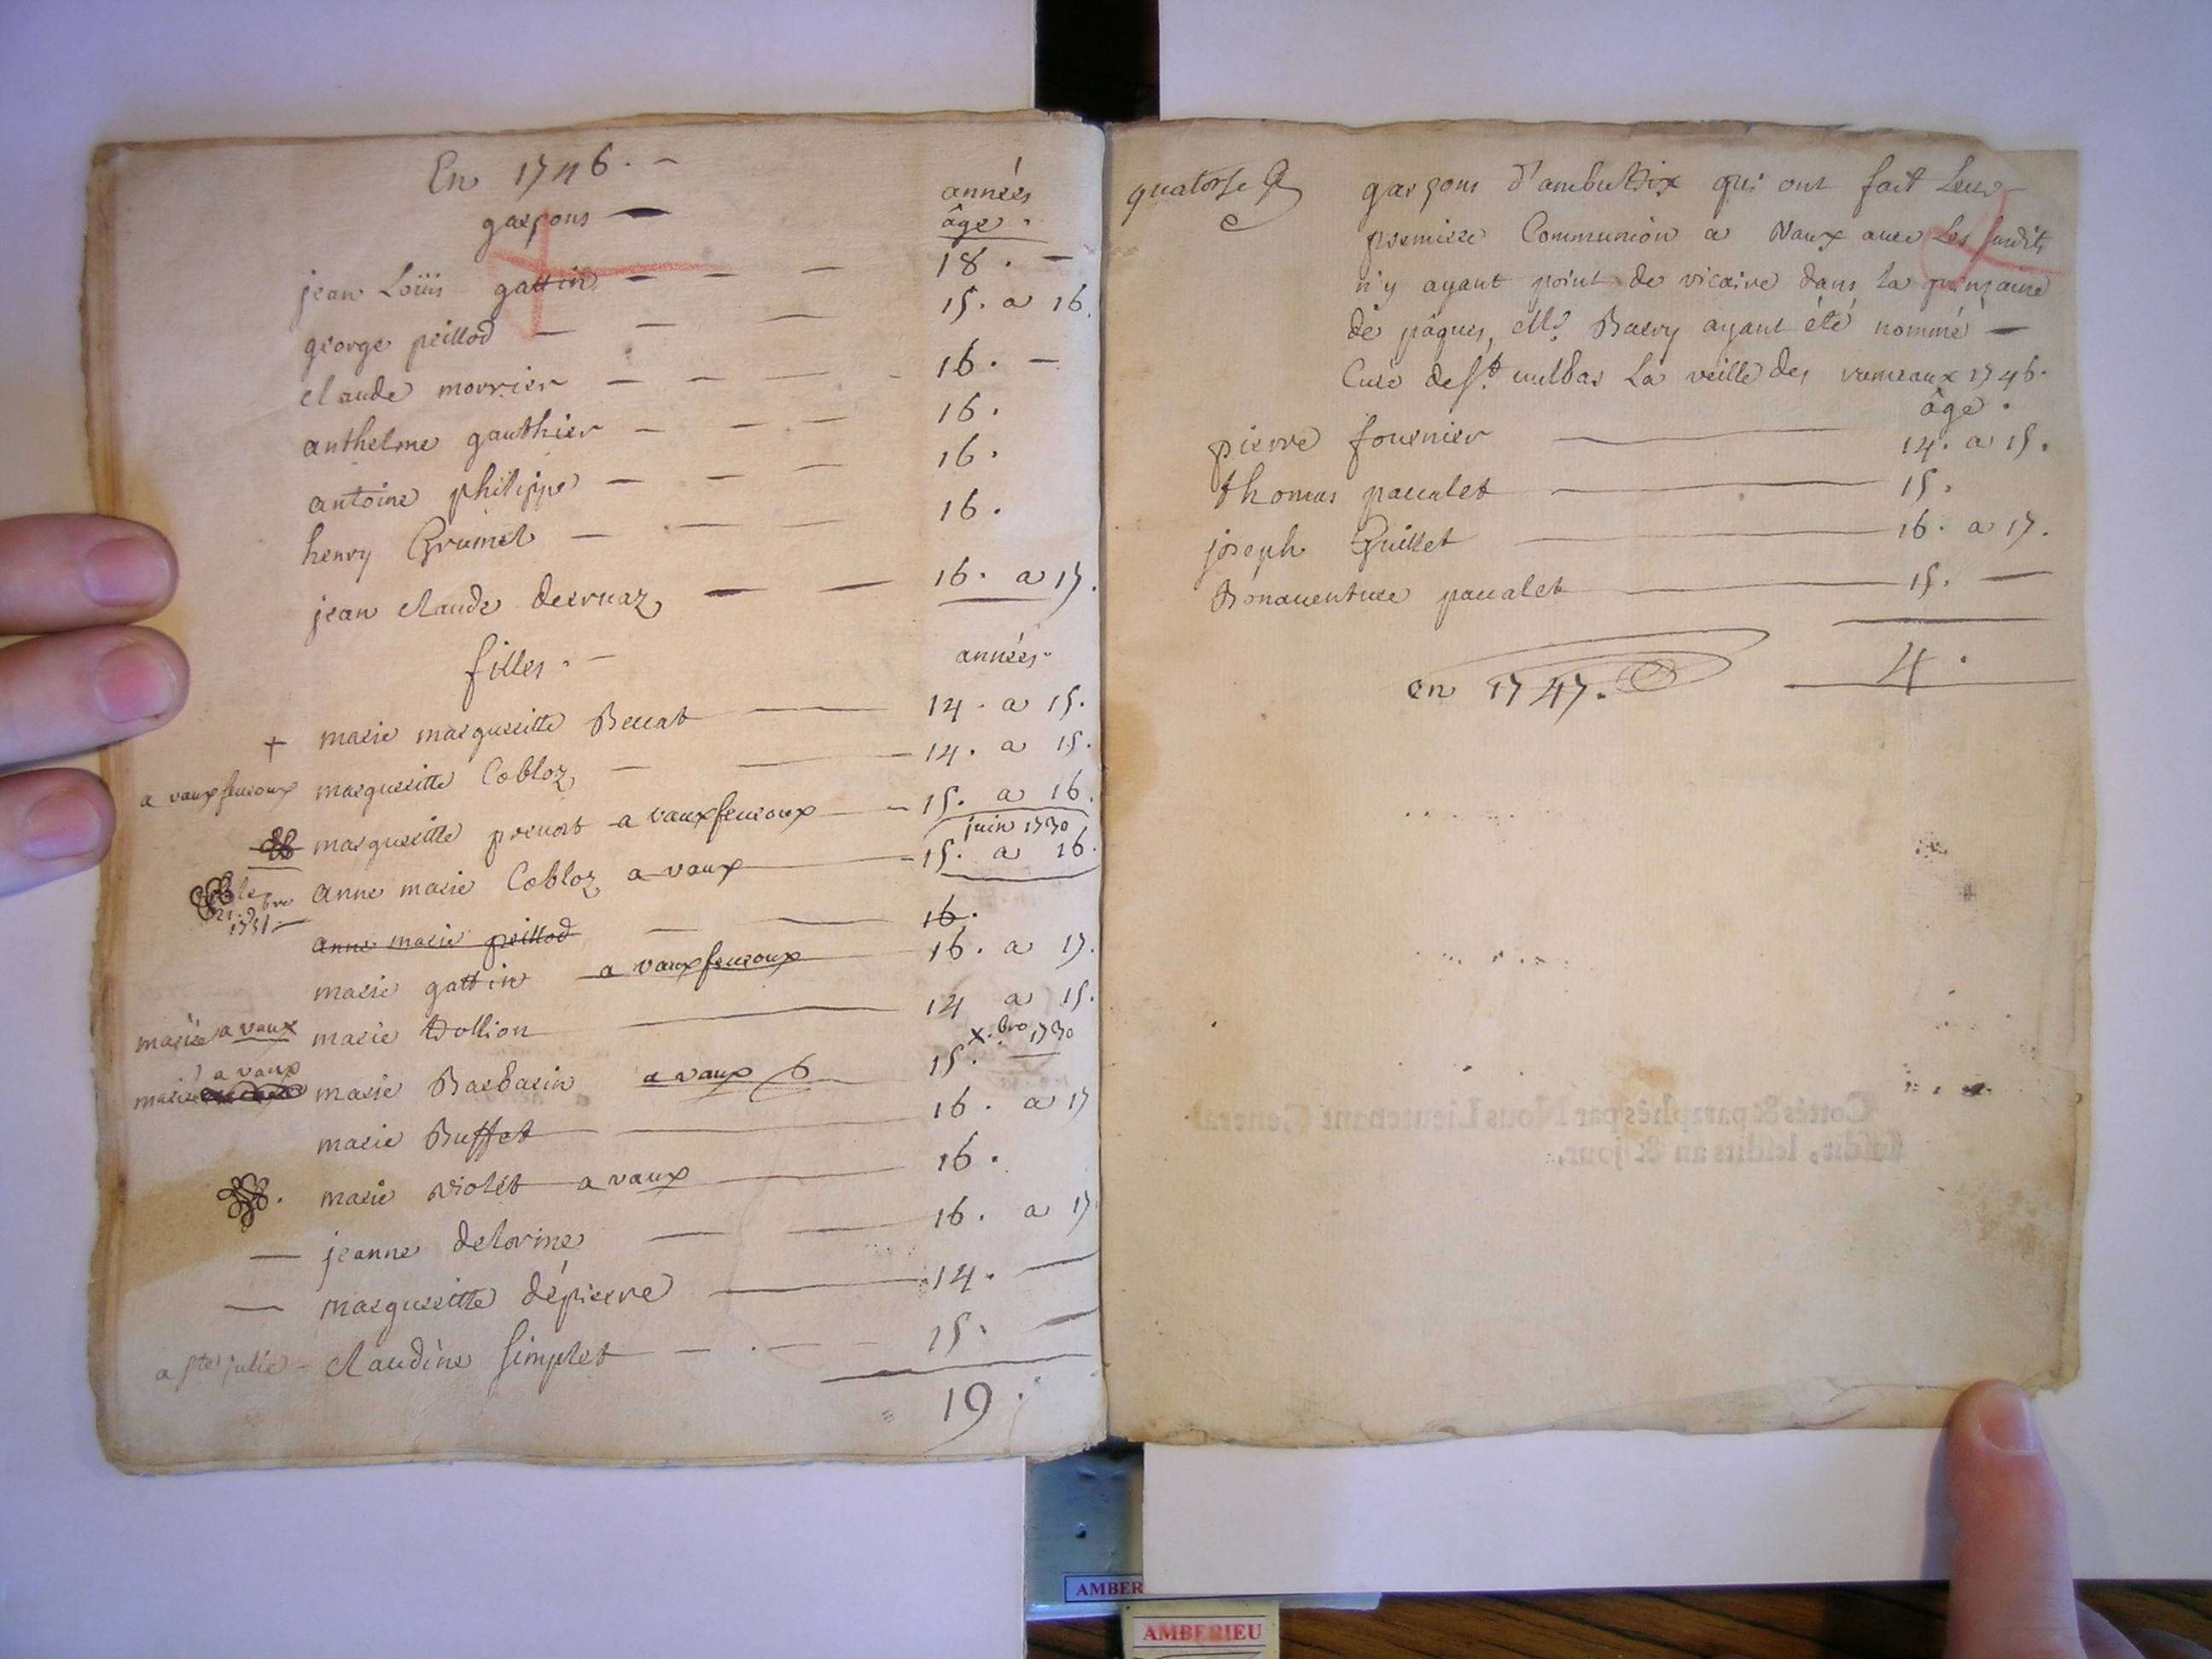 En 1746. -
garçons
années
âge .
jean Loüis gattin 18 .
george peillod 15. a 16.
claude morrier 16.
anthelme gauthier 16.
antoine philippe 16.
henry Grumet 16.
jean claude desruaz 16. a 17.
filles. - années.
+ marie margueritte Beccat 14. a 15.
a vauxfeuroux margueritte Cobloz 14. a 15.
margueritte prenost a vauxfeuroux 15. a 16.
juin 1730
anne marie Cobloz a vaux 15. a 16.
1731
anne marie peillod 16.
marie gattin a vauxfeuroux 16. a 17.
mariée a vaux marie Dollion 14 a 15.
x.bre 1730
mariée a vaux marie Barbarin a vaux 6 15.
marie Buffet 16. a 17
marie violet a vaux 16.
jeanne delorme 16. a 17
margueritte dépierre 14.
a ste julie - claudine simplet 15.
19.
quatorse
garçons d'ambuttix qui ont fait leur
premiere Communion a Vaux avec Les susdits
n'y ayant point de vicaire dans la quinzaine
de pâques, Mr. Barry ayant été nommé
Curé de st. vulbas La veille des rameaux 1746.
âge .
pierre fournier 14. a 15.
thomas pacalet 15.
joseph Guillet 16. a 17.
Bonaventure pacalet 15.
4.
en 1747.
Cottés & paraphés par Nous Lieutenant General
susdit, lesdits an & jour.
AMBER
AMBERIEU